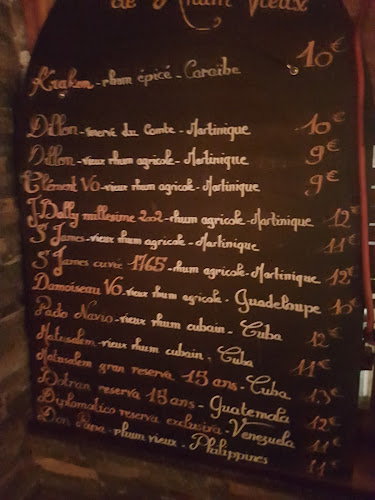 de Rhum Vieux
Kraken - rhum épicé - Caraïbe 10€
Dillon - vieux du Comte - Martinique 10€
Dillon - vieux rhum agricole - Martinique 9€
Clément VO - vieux rhum agricole - Martinique 9€
J Bally millesime 2002 - rhum agricole - Martinique 12€
St James - vieux rhum agricole - Martinique 11€
St James cuvée 1765 - rhum agricole - Martinique 12€
Damoiseau VO - vieux rhum agricole - Guadeloupe 10€
Pado Navio - vieux rhum cubain - Cuba 12€
Matusalem - vieux rhum cubain, Cuba 11€
Matusalem gran reserva 15 ans - Cuba 13€
Botran reserva 15 ans - Guatemala 12€
Diplomatico reserva exclusiva - Venezuela 11€
Don Papa - rhum vieux - Philippines 11€